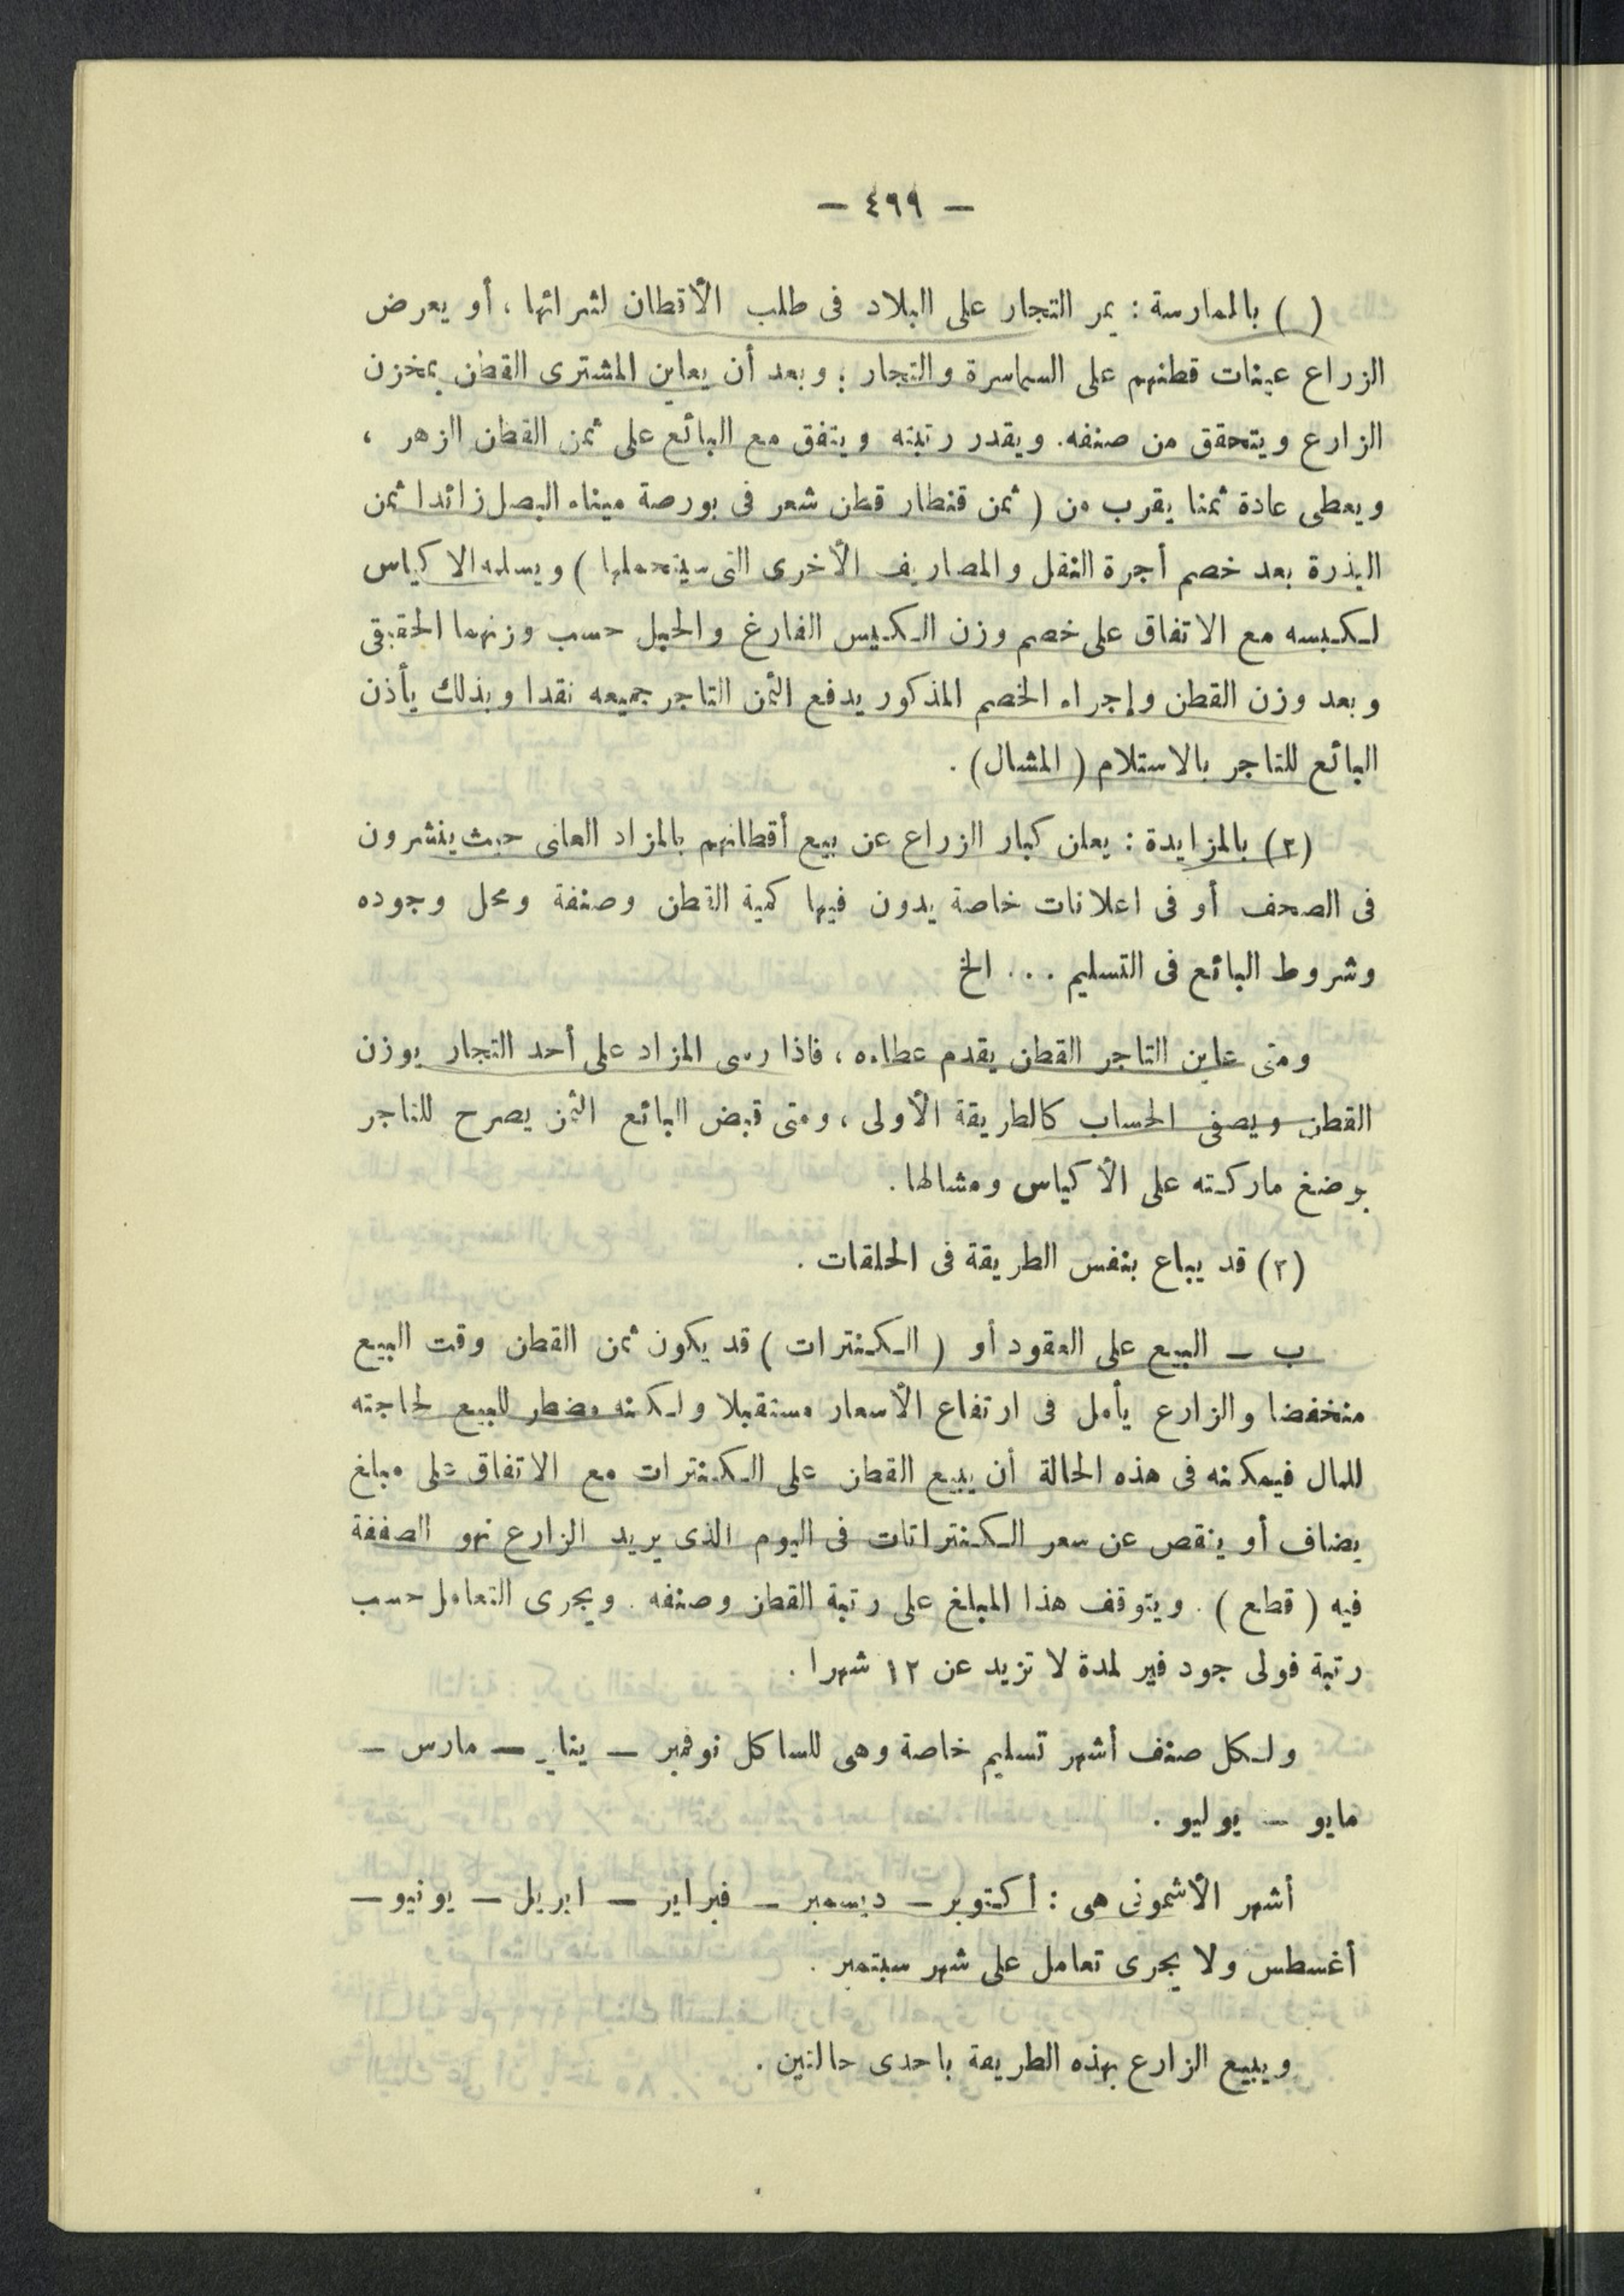 — ٤٩٩ —
( ) بالممارسة : يمر التجار على البلاد فى طلب الأقطان لشرائها ، أو يعرض
الزراع عينات قطنهم على السماسرة والتجار ؛ وبعد أن يعاين المشترى القطن بمخزن
الزارع ويتحقق من صنفه. ويقدر رتبته ويتفق مع البائع على ثمن القطن الزهر ،
ويعطى عادة ثمنا يقرب من ( ثمن قنطار قطن شعر فى بورصة ميناه البصل زائدا ثمن
البذرة بعد خصم أجرة النقل والمصاريف الأخرى التى سيتحملها ) ويسلمه الاكياس
لكبسه مع الاتفاق على خصم وزن الكيس الفارغ والحبل حسب وزنهما الحقيقى
وبعد وزن القطن وإجراء الخصم المذكور يدفع الثمن التاجر جميعه نقدا وبذلك يأذن
البائع للتاجر بالاستلام ( المشال ) .
(٢) بالمزايدة : يعلن كبار الزراع عن بيع أقطانهم بالمزاد العانى حيث ينشرون
فى الصحف أو فى اعلانات خاصة يدون فيها كمية القطن وصنفة ومحل وجوده
وشروط البائع فى التسليم . . . الخ
ومتى عاين التاجر القطن يقدم عطاءه ، فاذا رسى المزاد على أحد التجار يوزن
القطن ويصفى الحساب كالطريقة الأولى ، ومتى قبض البائع الثمن يصرح للتاجر
بوضغ ماركته على الأكياس ومشالها .
(٣) قد يباع بنفس الطريقة فى الحلقات .
ب — البيع على العقود أو ( الكنترات ) قد يكون ثمن القطن وقت البيع
منخفضا والزارع يأمل فى ارتفاع الأسعار مستقبلا ولكنه مضطر للبيع لحاجته
للمال فيمكنه فى هذه الحالة أن يبيع القطن على الكنترات مع الاتفاق على مبلغ
يضاف أو ينقص عن سعر الكنتراتات فى اليوم الذى يريد الزارع نهو الصفقة
فيه ( قطع ) . ويتوقف هذا المبلغ على رتبة القطن وصنفه . ويجرى التعامل حسب
رتبة فولى جود فير لمدة لا تزيد عن ١٢ شهرا .
ولكل صنف أشهر تسليم خاصة وهى للساكل نوفمبر — يناير — مارس —
مايو — يوليو .
أشهر الأشمونى هى : أكتوبر — ديسمبر — فبراير — ابريل — يونيو —
أغسطس ولا يجرى تعامل على شهر سبتمبر .
ويبيع الزارع بهذه الطريقة باحدى حالتين .